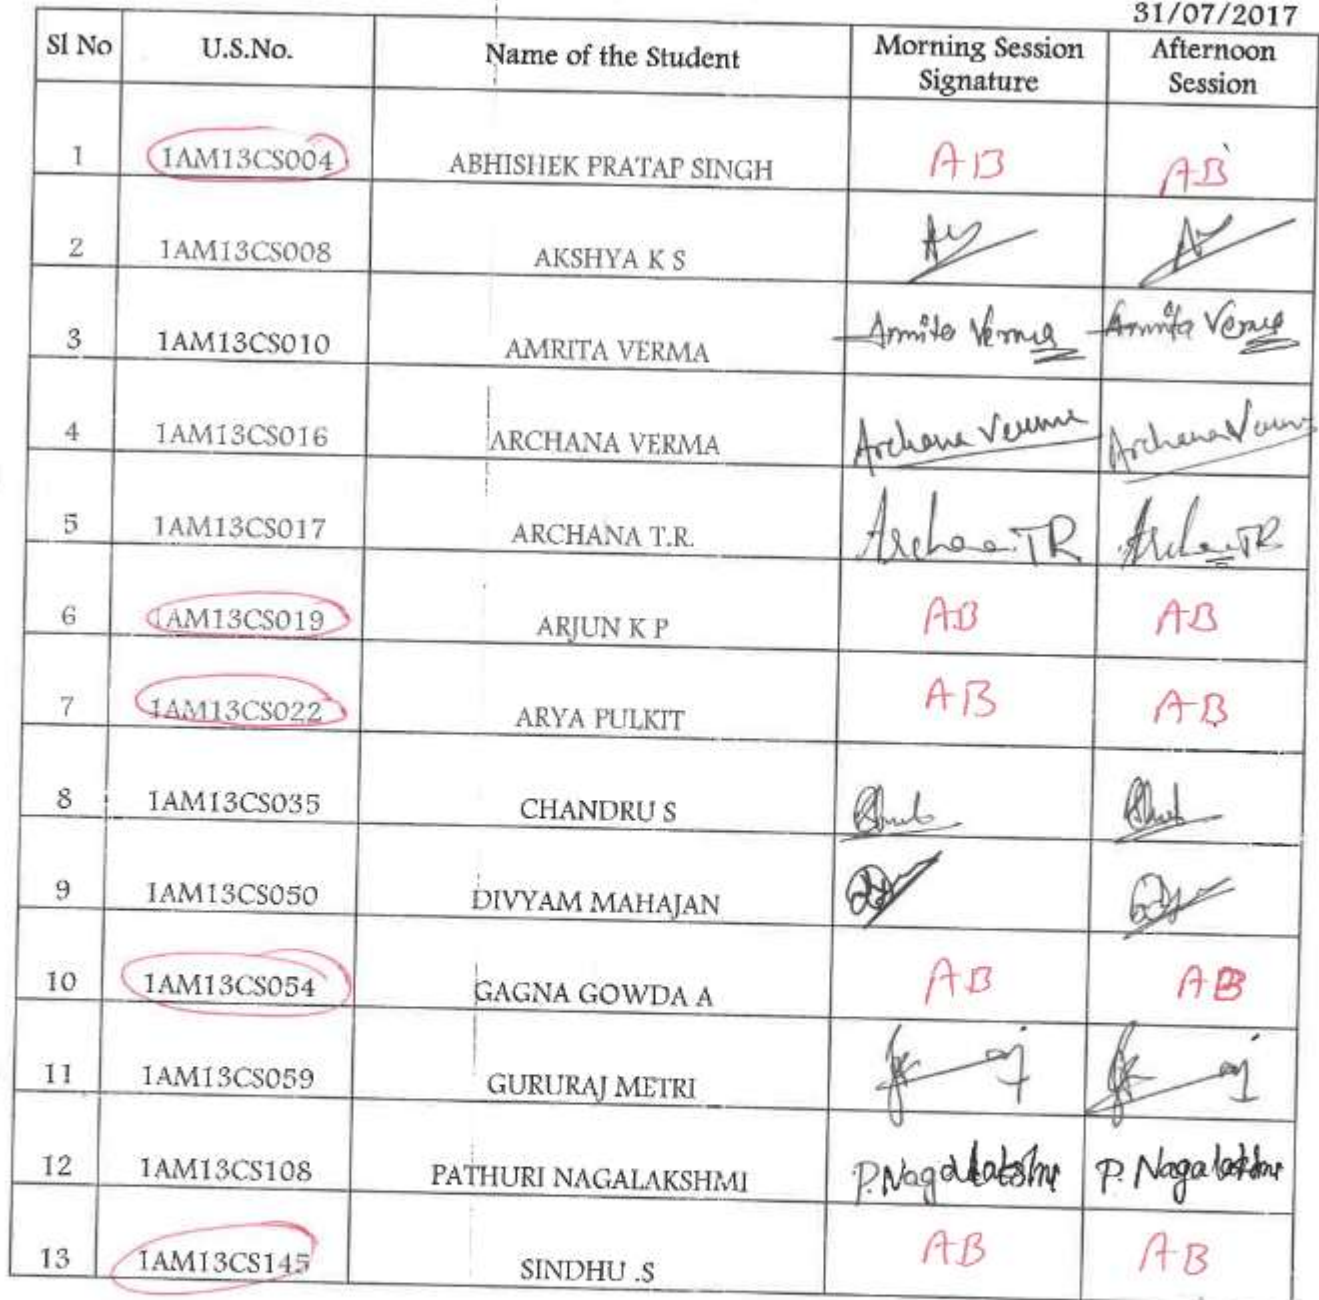 31/07/2017
Sl No U.S.No. Name of the Student Morning Session Signature Afternoon Session
1 1AM13CS004 ABHISHEK PRATAP SINGH AB AB
2 1AM13CS008 AKSHYA K S
3 1AM13CS010 AMRITA VERMA Amrita Verma Amrita Verma
4 1AM13CS016 ARCHANA VERMA Archana Verma Archana Verma
5 1AM13CS017 ARCHANA T.R. Archana TR Archana TR
6 1AM13CS019 ARJUN K P AB AB
7 1AM13CS022 ARYA PULKIT AB AB
8 1AM13CS035 CHANDRU S
9 1AM13CS050 DIVYAM MAHAJAN
10 1AM13CS054 GAGNA GOWDA A AB AB
11 1AM13CS059 GURURAJ METRI
12 1AM13CS108 PATHURI NAGALAKSHMI P. Nagalakshmi P. Nagalakshmi
13 1AM13CS145 SINDHU .S AB AB